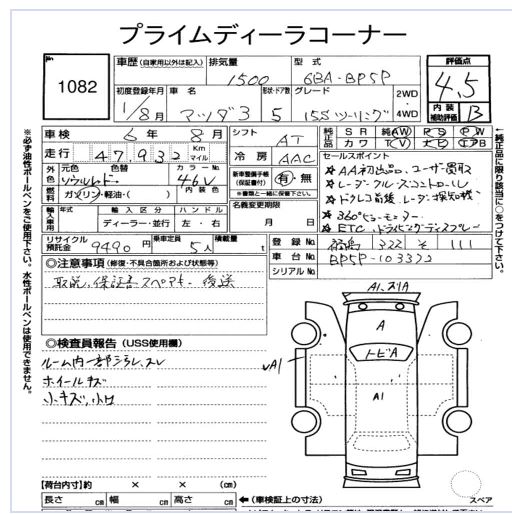 プライムディーラコーナー
No. 1082
車歴 (自家用以外は記入) 排気量 1500 型式 6BA-BP5P 評価点 4.5
初度登録年月 1/8月 車名 マツダ3 形状・ドア数 5 グレード 15Sツーリング 2WD・4WD 内装補助評価 B
車検 6年 8月 シフト AT 純正品 SR 純AW PS PW
カワ TV ナビ エアB
走行 47,932 Km マイル 冷房 AAC セールスポイント
外色 元色 ソウルレッド 色替 カラーNo. 46V 新車整備手帳(保証書付) 有・無 ※書類と一緒に保管下さい。 ★AA初出品、ユーザー買取
燃料 ガソリン・軽油・ 内装色 ★レーダークルーズコントロール
輸入車用 年式 輸入区分 ディーラー・並行 ハンドル 左・右 名義変更期限 月 日 ★ドラレコ前後、レーダー探知機
★360°ビューモニター
★ETC、ドライビングディスプレー
リサイクル預託金 9490円 乗車定員 5人 積載量 t 登録No. 福島 322 そ 111
車台No. BP5P-103322
シリアルNo.
◎注意事項 (修復・不具合箇所および状態等)
取説、保証書、スペアキー 後送
◎検査員報告 (USS使用欄)
ルーム内一部シミ、スレ
ホイールキズ
小キズ、小凹
A1、スリA
A
トビA
A1
A1
【荷台内寸】約 × × (cm)
長さ cm 幅 cm 高さ cm ←(車検証上の寸法)
スペア
※必ず油性ボールペンをご使用下さい。水性ボールペンは使用できません。
↑純正品に限り該当に○をつけて下さい。